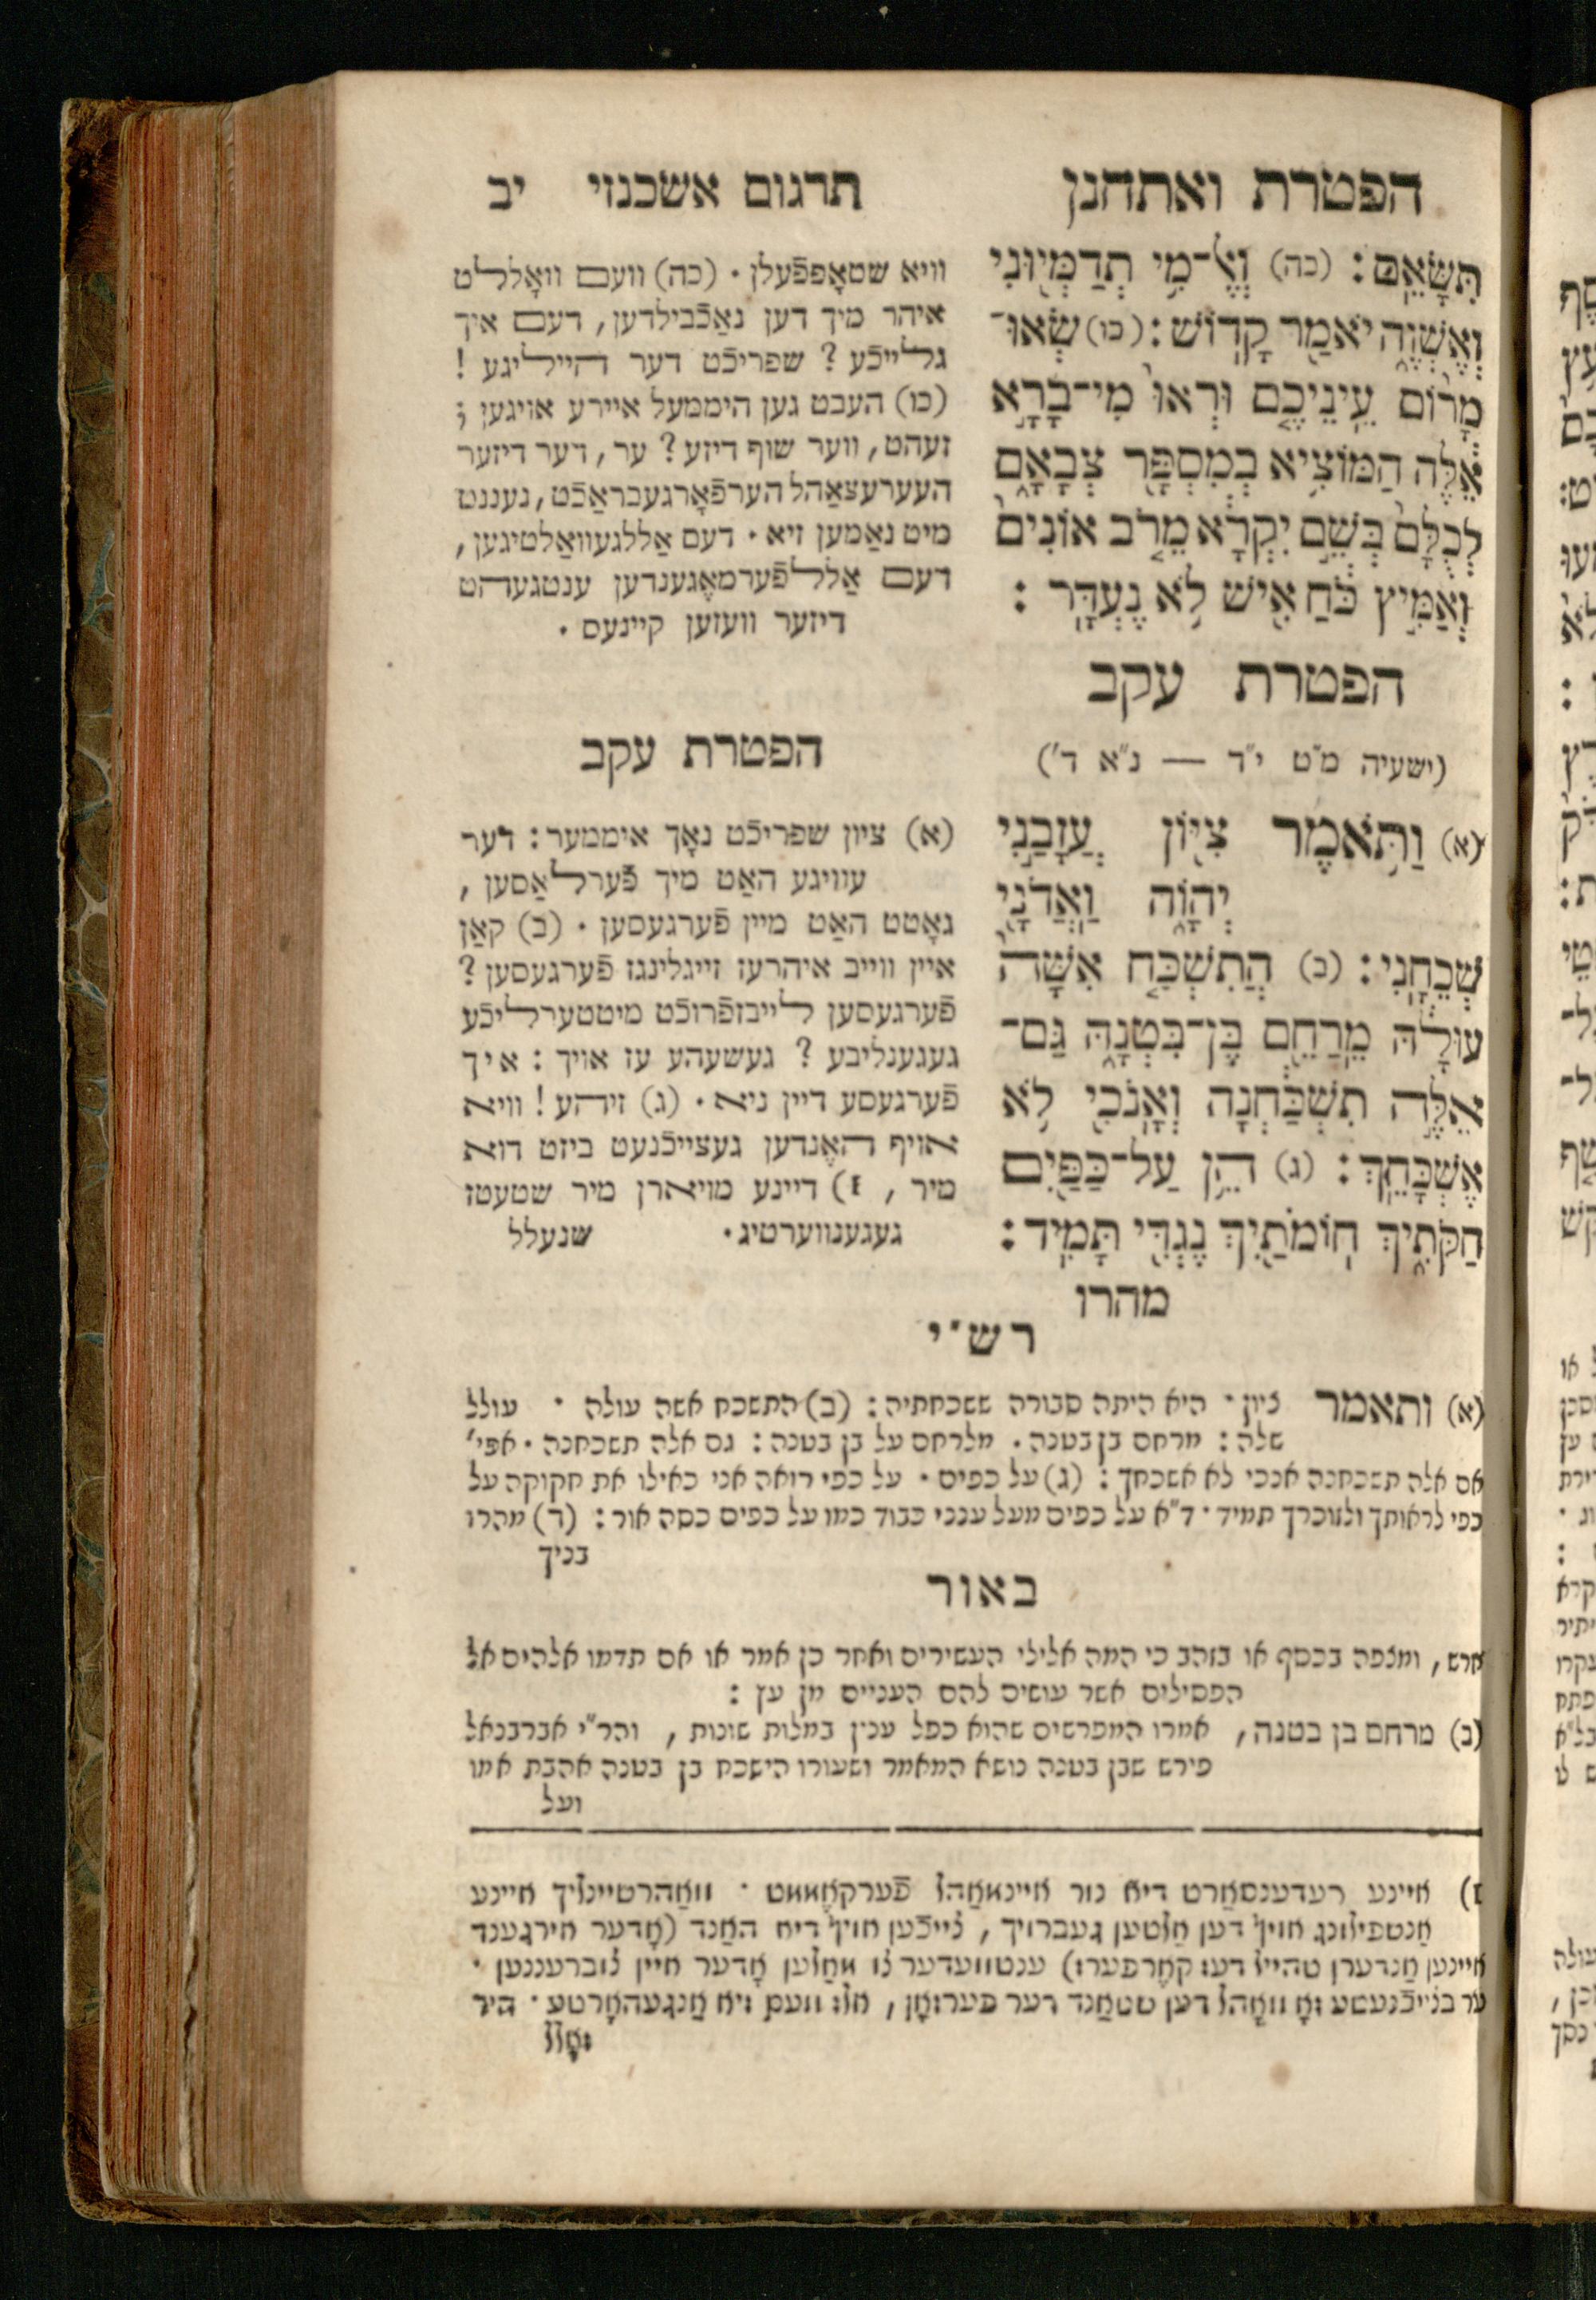 הפטרת ואתחנן
תרגום אשכנזי יב
תִּשָּׂאֵֽם׃ (כה) וְאֶל־מִ֥י תְדַמְּי֖וּנִי
וְאֶשְׁוֶ֑ה יֹאמַ֖ר קָדֽוֹשׁ׃ (כו) שְׂאוּ־
מָר֨וֹם עֵינֵיכֶ֤ם וּרְאוּ֙ מִי־בָרָ֣א
אֵ֔לֶּה הַמּוֹצִ֥יא בְמִסְפָּ֖ר צְבָאָ֑ם
לְכֻלָּם֙ בְּשֵׁ֣ם יִקְרָ֔א מֵרֹ֤ב אוֹנִים֙
וְאַמִּ֣יץ כֹּ֔חַ אִ֖ישׁ לֹ֥א נֶעְדָּֽר׃
הפטרת עקב
(ישעיה מ״ט י״ד — נ״א ד׳)
(א) וַתֹּ֥אמֶר צִיּ֖וֹן עֲזָבַ֣נִי
יְהוָ֑ה וַֽאדֹנָ֖י
שְׁכֵחָֽנִי׃ (ב) הֲתִשְׁכַּ֤ח אִשָּׁה֙
עוּלָ֔הּ מֵֽרַחֵ֖ם בֶּן־בִּטְנָ֑הּ גַּם־
אֵ֣לֶּה תִשְׁכַּ֔חְנָה וְאָֽנֹכִ֖י לֹ֥א
אֶשְׁכָּחֵֽךְ׃ (ג) הֵ֥ן עַל־כַּפַּ֖יִם
חַקֹּתִ֑יךְ חֽוֹמֹתַ֥יִךְ נֶגְדִּ֖י תָּמִֽיד׃
מהרו
וויא שטאָפּפֿעלן · (כה) וועם וואָללט
איהר מיך דען נאַכֿבילדען, דעם איך
גלייכֿע? שפריכֿט דער הייליגע!
(כו) העבט גען היממעל איירע אויגען;
זעהט, ווער שוף דיזע? ער, דער דיזער
העערעצאַהל הערפֿאָרגעבראַכֿט, נעננט
מיט נאַמען זיא · דעם אַללגעוואַלטיגען,
דעם אַללפֿערמאָגענדען ענטגעהט
דיזער וועזען קיינעס ·
הפטרת עקב
(א) ציון שפריכֿט נאָך איממער: דער
עוויגע האַט מיך פֿערלאַסען,
גאָטט האַט מיין פֿערגעסען · (ב) קאַן
איין ווייב איהרעז זייגלינגז פֿערגעסען?
פֿערגעסען לייבזפֿרוכֿט מיטטערליכֿע
געגענליבע? געשעהע עז אויך: איך
פֿערגעסע דיין ניא · (ג) זיהע! וויא
אויף האָנדען געצייכֿנעט ביזט דוא
מיר, 1) דיינע מויארן מיר שטעטז
געגענווערטיג · שנעלל
רש״י
(א) ותאמר ציון · היא היתה סבורה ששכחתיה: (ב) התשכח אשה עולה · עולל
שלה: מרחם בן בטנה · מלרחם על בן בטנה: גם אלה תשכחנה · אפי׳
אם אלה תשכחנה אנכי לא אשכחך: (ג) על כפים · על כפי רואה אני כאילו את חקוקה על
כפי לראותך ולזוכרך תמיד · ד״א על כפים מעל ענני כבוד כמו על כפים כסה אור: (ד) מהרו
בניך
באור
חרש, ומצפה בכסף או בזהב כי המה אלילי העשירים ואחר כן אמר או אם תדמו אלהים אל
הפסילים אשר עושים להם העניים מן עץ:
(ב) מרחם בן בטנה, אמרו המפרשים שהוא כפל ענין במלות שונות, והר״י אברבנאל
פירש שבן בטנה נושא המאמר ושעורו הישכח בן בטנה אהבת אמו
ועל
1) איינע רעדענסאַרט דיא נור איינמאַהל פֿערקאָממט · וואַהרשיינליך איינע
אַנשפילונג אויף דען אַלטען געברויך, צייכֿען אויף דיא האַנד (אָדער אירגענד
איינען אַנדערן טהייל דעז קאָרפערז) ענטוועדער צו מאַלען אָדער איין צוברעננען ·
ער בצייכֿנעטע זאָ וואָהל דען שטאַנד דער פערזאָן, אלז וועם זיא אַנגעהאָרטע · היר
זאָלל